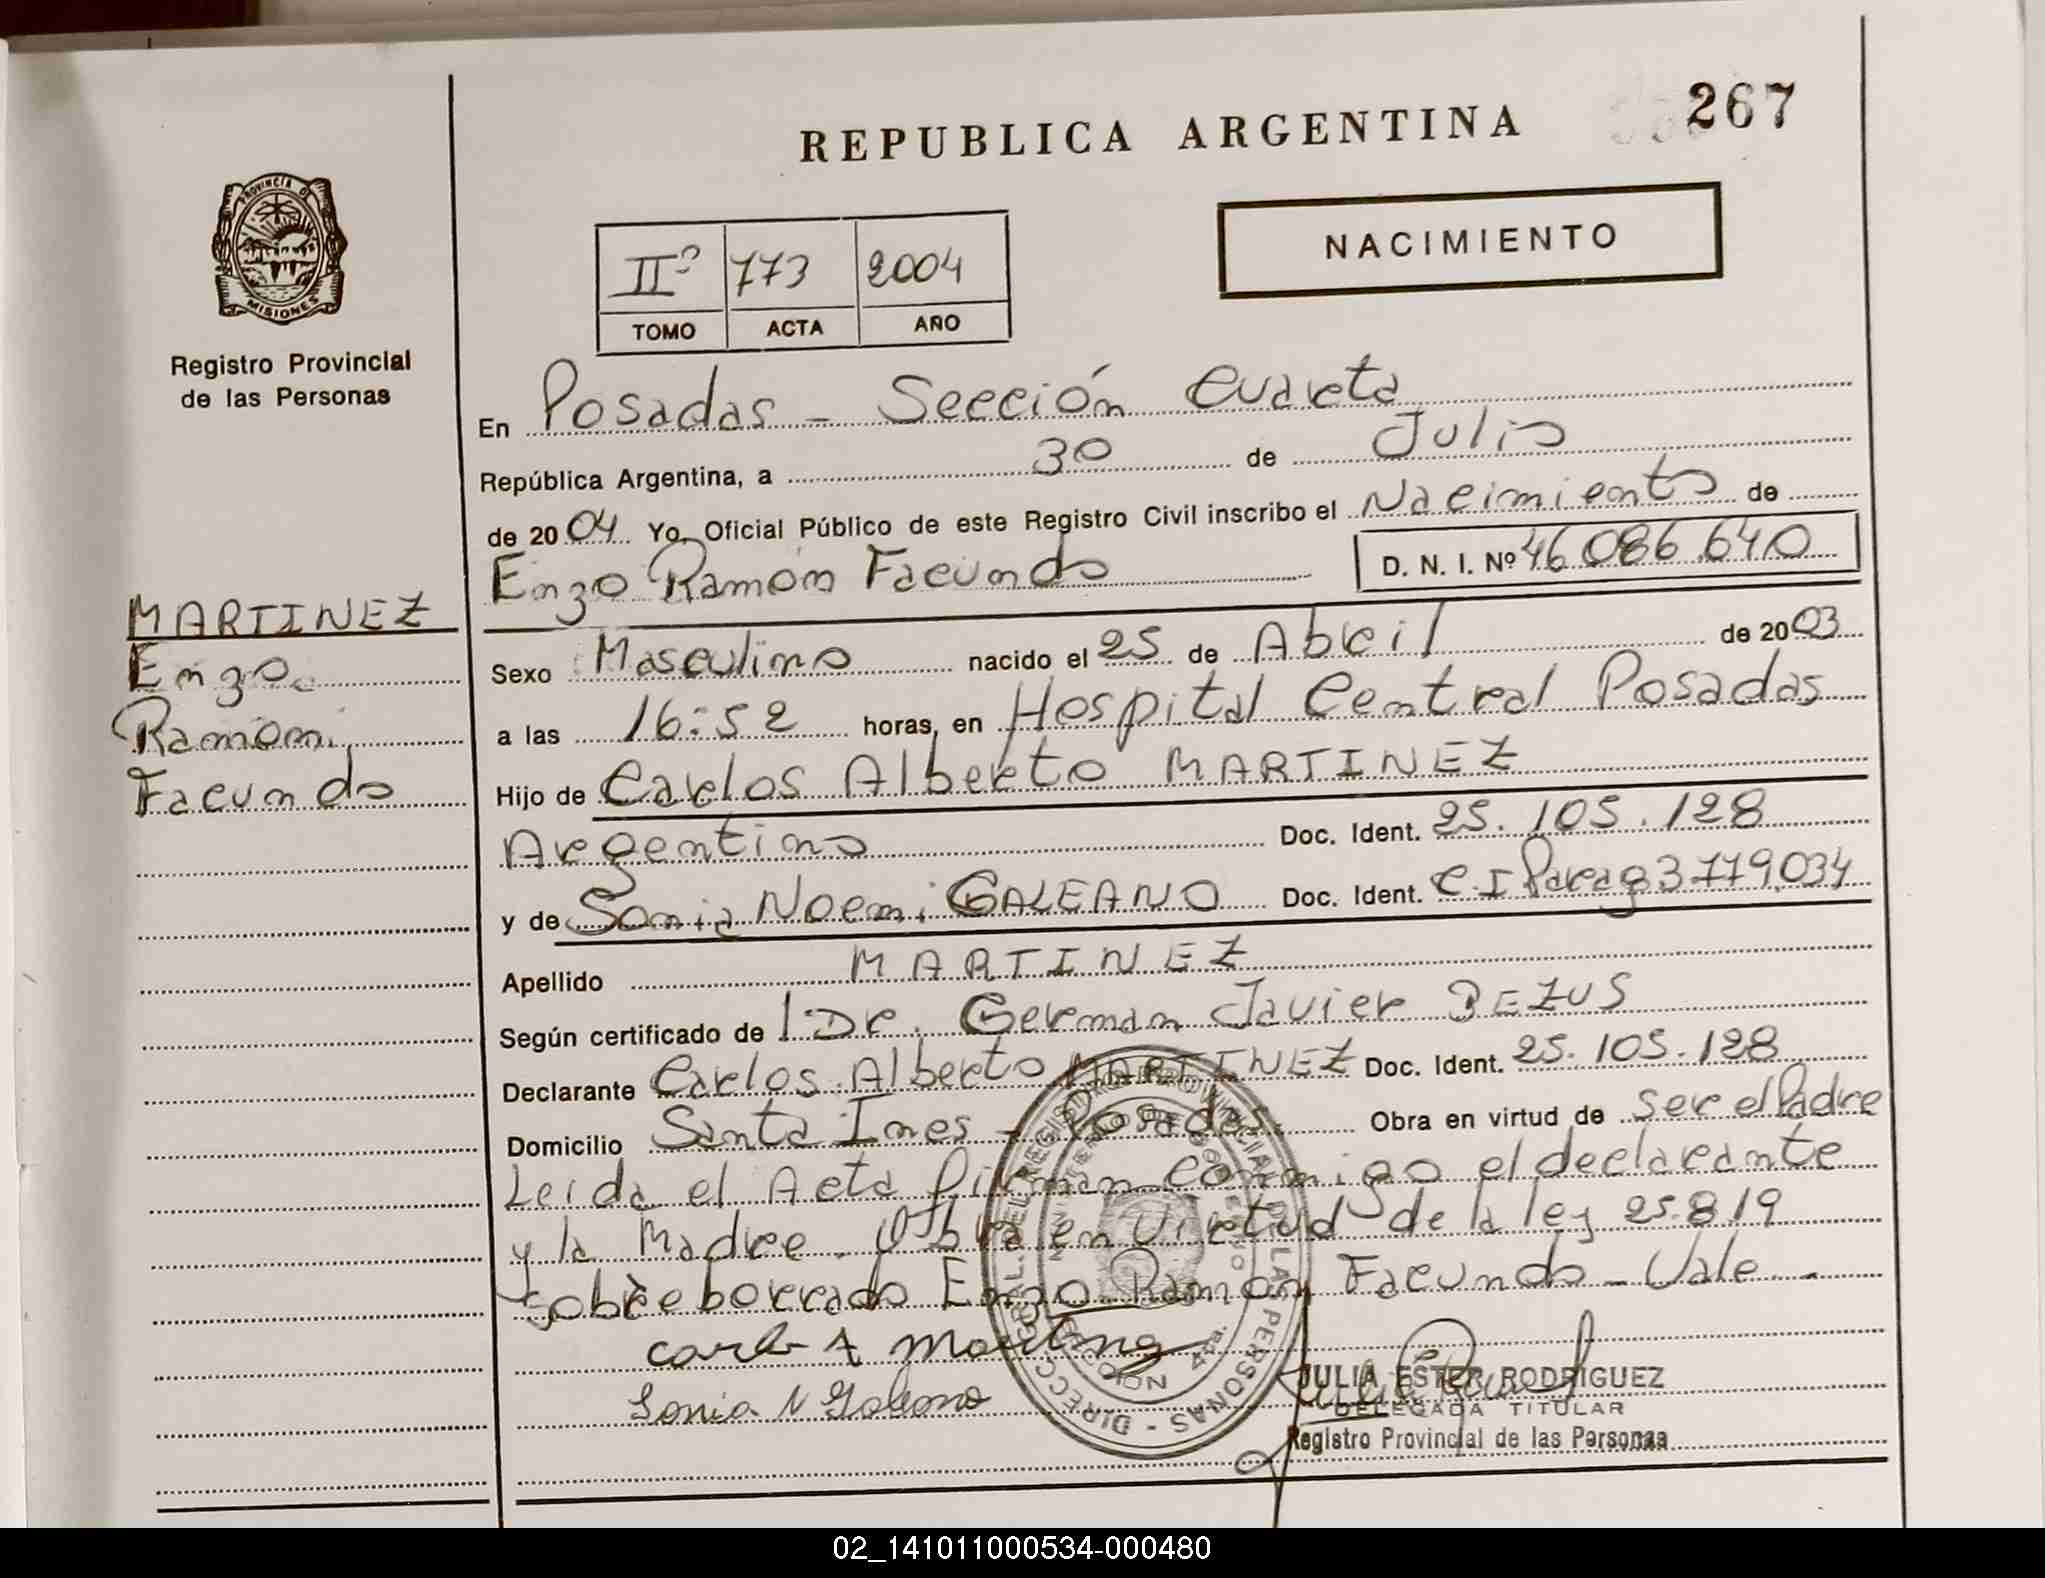 REPUBLICA ARGENTINA
267
PROVINCIA DE
MISIONES
Registro Provincial
de las Personas
NACIMIENTO
IIº 773 2004
TOMO ACTA AÑO
En Posadas - Sección Cuarta
República Argentina, a 30 de Julio
de 2004 Yo, Oficial Público de este Registro Civil inscribo el Nacimiento de
Enzo Ramón Facundo D. N. I. Nº 46086.640
MARTINEZ
Enzo
Ramón
Facundo
Sexo Masculino nacido el 25 de Abril de 2003
a las 16:52 horas, en Hospital Central Posadas
Hijo de Carlos Alberto MARTINEZ
Argentino Doc. Ident. 25.105.128
y de Sonia Noemi GALEANO Doc. Ident. C.I Parag 3.779.034
Apellido MARTINEZ
Según certificado de Dr. German Javier BEZUS
Declarante Carlos Alberto MARTINEZ Doc. Ident. 25.105.128
Domicilio Santa Ines - Posadas Obra en virtud de ser el Padre
Leida el Acta firman conmigo el declarante
y la Madre. Obra en virtud de la ley 25.819
sobre borrado Enzo Ramón Facundo - Vale -
Carlos A Martinez
Sonia N Galeano
DIRECCION GRAL. DEL REGISTRO PROVINCIAL DE LAS PERSONAS
JULIA ESTER RODRIGUEZ
DELEGADA TITULAR
Registro Provincial de las Personas
02_141011000534-000480